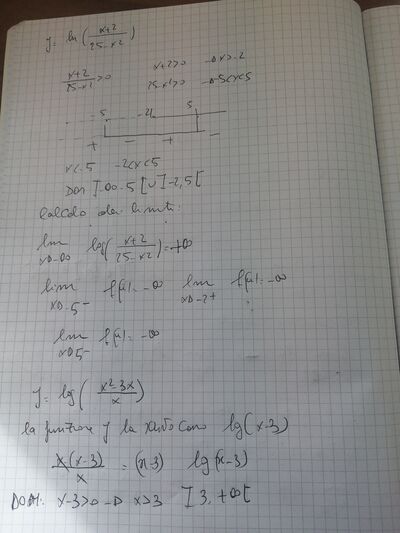 y = ln ( x+2 / 25-x² )
x+2 / 25-x² > 0    x+2>0 → x>-2
25-x²>0 → -5<x<5
-5    -2    5
+ - + -
x<-5    -2<x<5
Dom ]-∞ -5[ ∪ ]-2, 5[
Calcolo dei limiti:
lim x→-∞ log( x+2 / 25-x² ) = +∞
lim x→-5⁻ f(x) = -∞    lim x→-2⁺ f(x) = -∞
lim x→5⁻ f(x) = -∞
y = log ( x²-3x / x )
la funzione y la riscrivo come lg(x-3)
x(x-3) / x = (x-3)    lg(x-3)
DOM: x-3>0 → x>3    ]3, +∞[